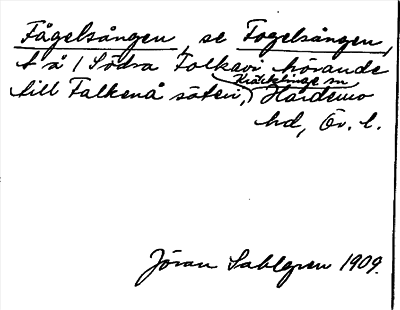 Fågelsången, se Fogelsången,
t å / Södra Folkavi hörande
Kräcklinge sn
till Falkenå säteri, Hardemo
hd, Ör. l.
Jöran Sahlgren 1909.